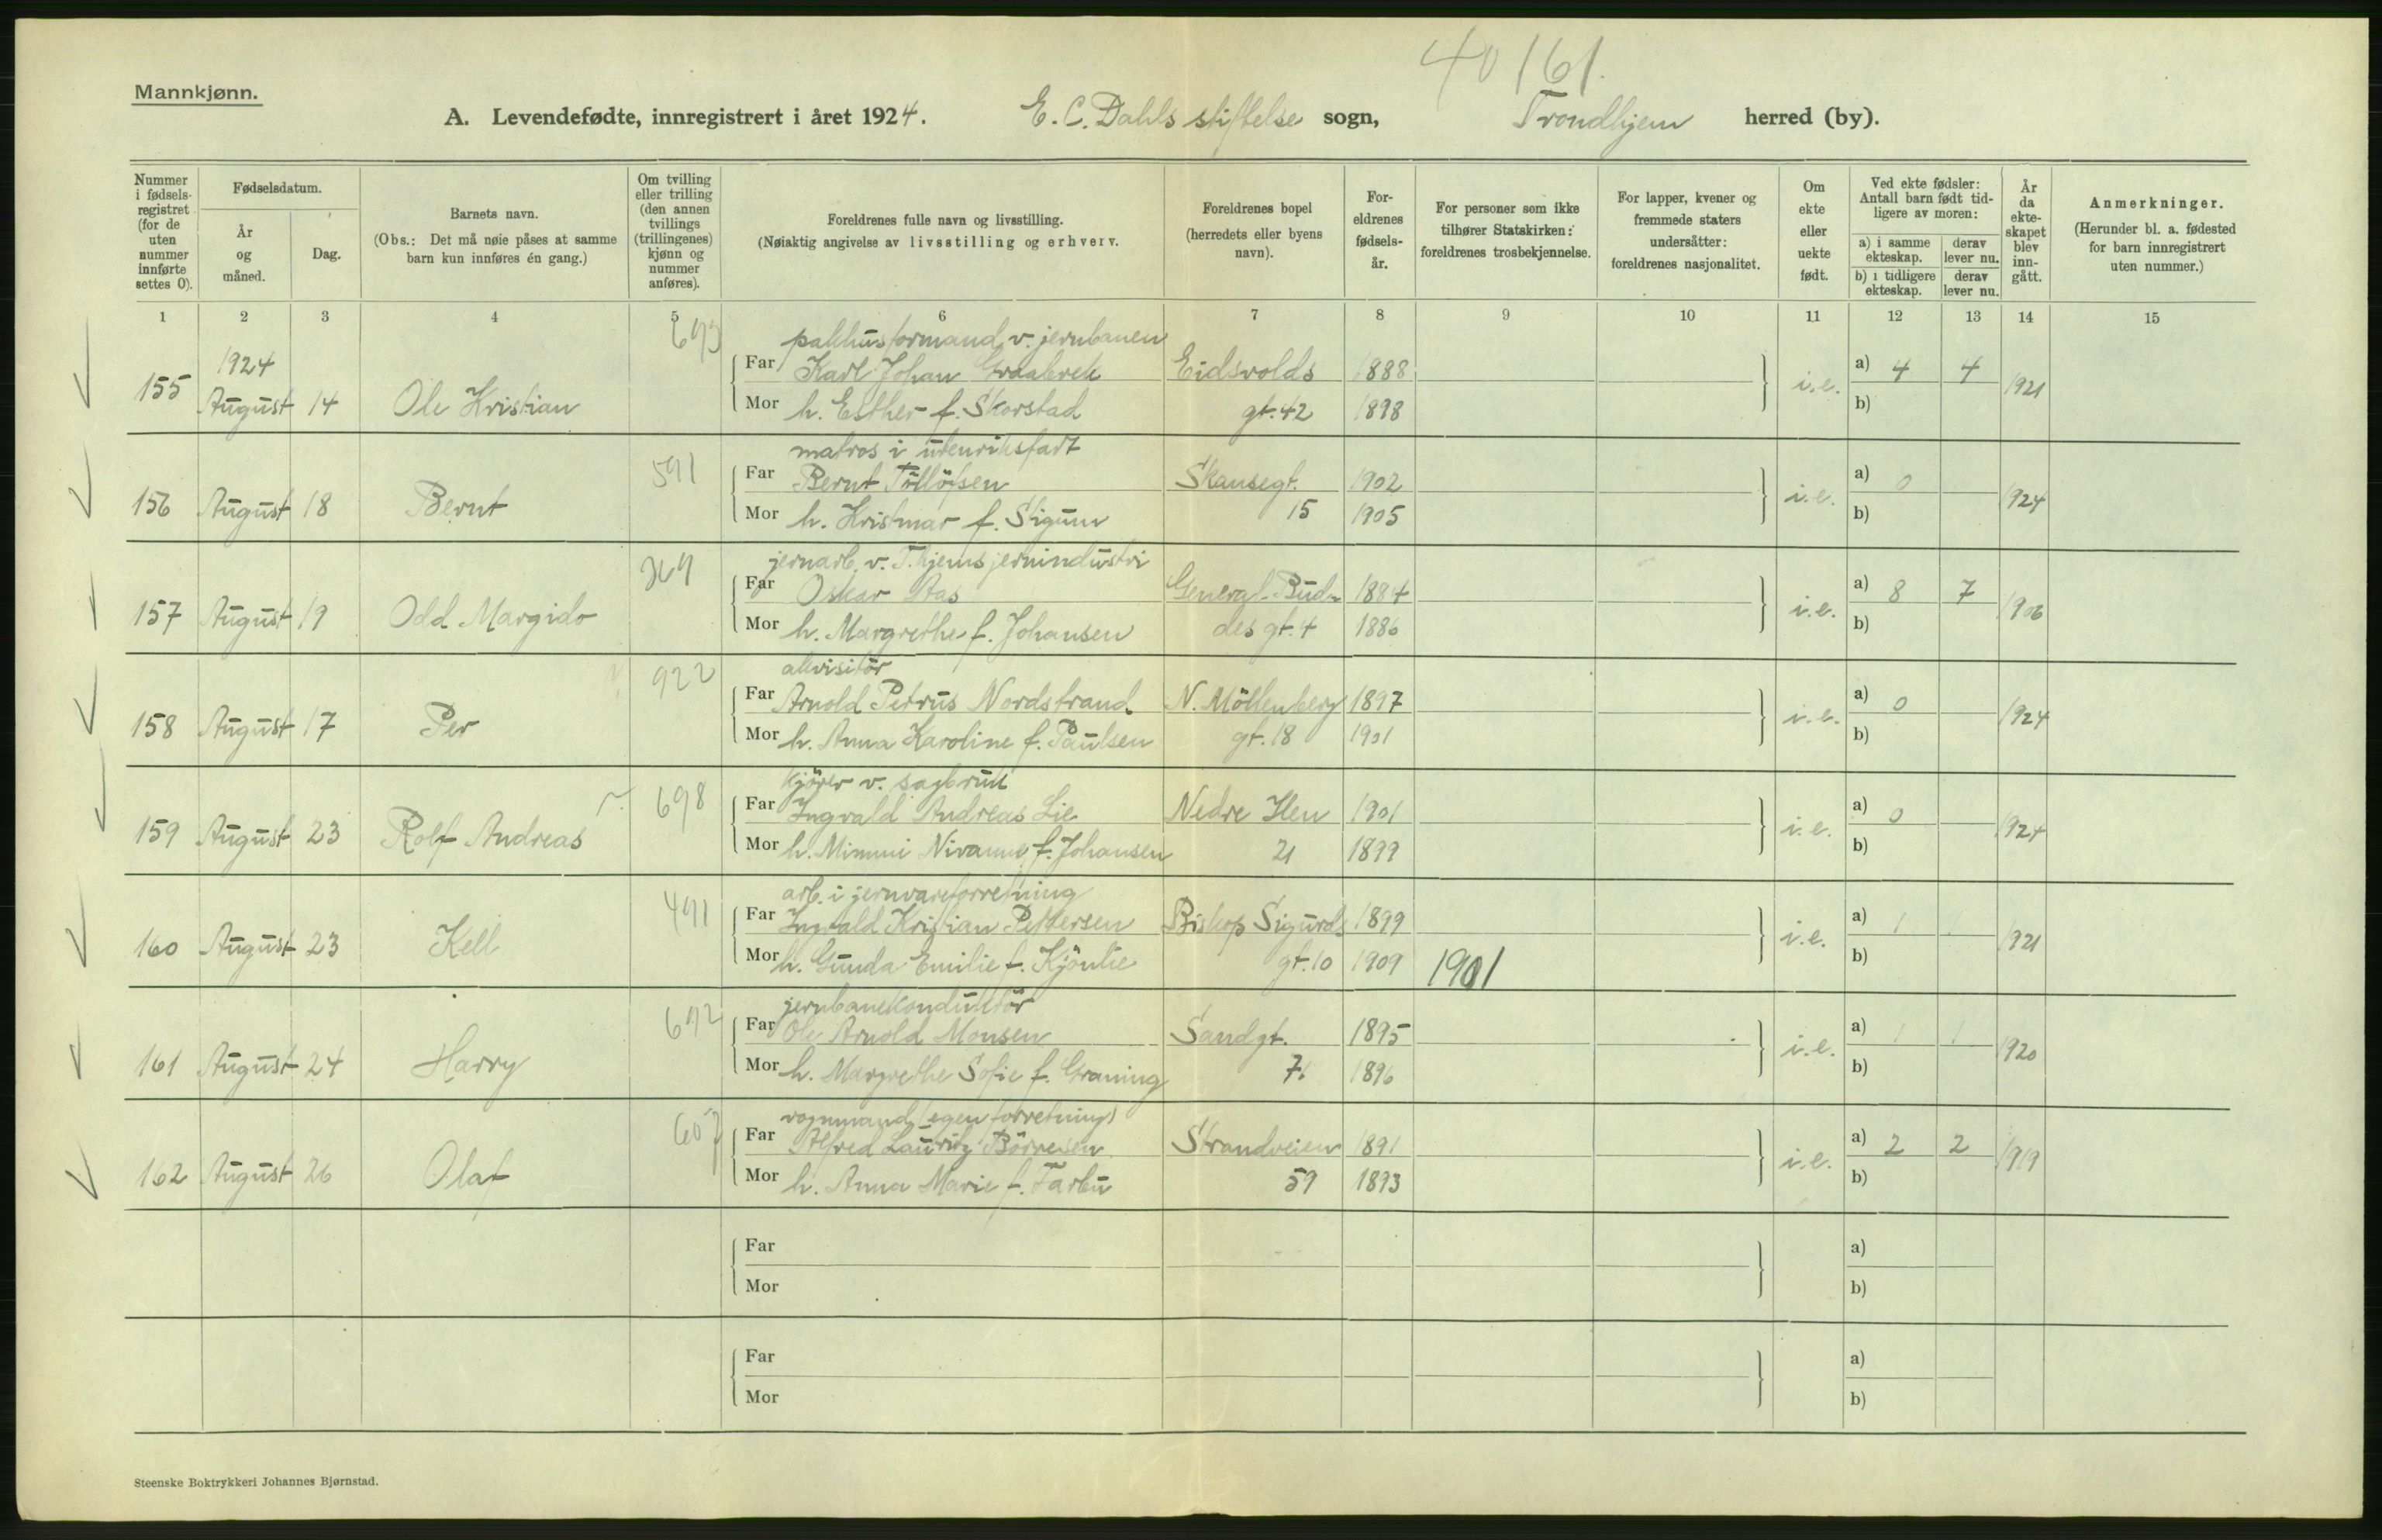 40161.
Mannkjønn.
A. Levendefødte, innregistrert i året 1924. E. C. Dahls stiftelse sogn, Trondhjem herred (by).
Nummer i fødsels- registret (for de uten nummer innførte settes 0).
Fødselsdatum.
År og måned.
Dag.
Barnets navn.
(Obs.: Det må nøie påses at samme barn kun innføres én gang.)
Om tvilling eller trilling (den annen tvillings (trillingenes) kjønn og nummer anføres).
Foreldrenes fulle navn og livsstilling.
(Nøiaktig angivelse av livsstilling og erhverv.
Foreldrenes bopel (herredets eller byens navn).
For- eldrenes fødsels- år.
For personer som ikke tilhører Statskirken: foreldrenes trosbekjennelse.
For lapper, kvener og fremmede staters undersåtter: foreldrenes nasjonalitet.
Om ekte eller uekte født.
Ved ekte fødsler: Antall barn født tid- ligere av moren:
a) i samme ekteskap. derav lever nu.
b) i tidligere ekteskap. derav lever nu.
År da ekte- skapet blev inn- gått.
Anmerkninger.
(Herunder bl. a. fødested for barn innregistrert uten nummer.)
1 2 3 4 5 6 7 8 9 10 11 12 13 14 15
693 pakhusformand v. jernbanen
1924 Far Karl Johan Graabrek Eidsvolds 1888 a) 4 4
155 August 14 Ole Kristian Mor h. Esther f. Skorstad gt. 42 1898 i.e. b) 1921
matros i utenriksfart
591 Far Bernt Tollöfsen Skansegt. 1902 a) 0
156 August 18 Bernt Mor h. Kristmar f. Stigum 15 1905 i.e. b) 1924
jernarb. v. T.hjems jernindustri
369 Far Oskar Aas General Bud- 1884 a) 8 7
157 August 19 Odd Margido Mor h. Margrethe f. Johansen des gt. 4 1886 i.e. b) 1906
akvisitör
922 Far Arnold Petrus Nordstrand N. Möllenberg 1897 a) 0
158 August 17 Per Mor h. Anna Karoline f. Paulsen gt. 18 1901 i.e. b) 1924
kjörer v. sagbruk
698 Far Ingvald Andreas Lie Nedre Ilen 1901 a) 0
159 August 23 Rolf Andreas Mor h. Mimmi f. Johansen 21 1899 i.e. b) 1924
arb. i jernvareforretning
491 Far Ingvald Kristian Pettersen Biskop Sigurds 1899 a) 1 1
160 August 23 Kell Mor h. Gunda Emilie f. gt. 10 1909 1901 i.e. b) 1921
jernbanekonduktör
692 Far Ole Arnold Monsen Sandgt. 1895 a) 1 1
161 August 24 Harry Mor h. Margrethe Sofie f. Graning 71 1896 i.e. b) 1920
vognmand (egen forretning)
607 Far Alfred Lauritz Börresen Strandveien 1891 a) 2 2
162 August 26 Olaf Mor h. Anna Marie f. Farbu 59 1893 i.e. b) 1919
Far a)
Mor b)
Far a)
Mor b)
Steenske Boktrykkeri Johannes Bjørnstad.